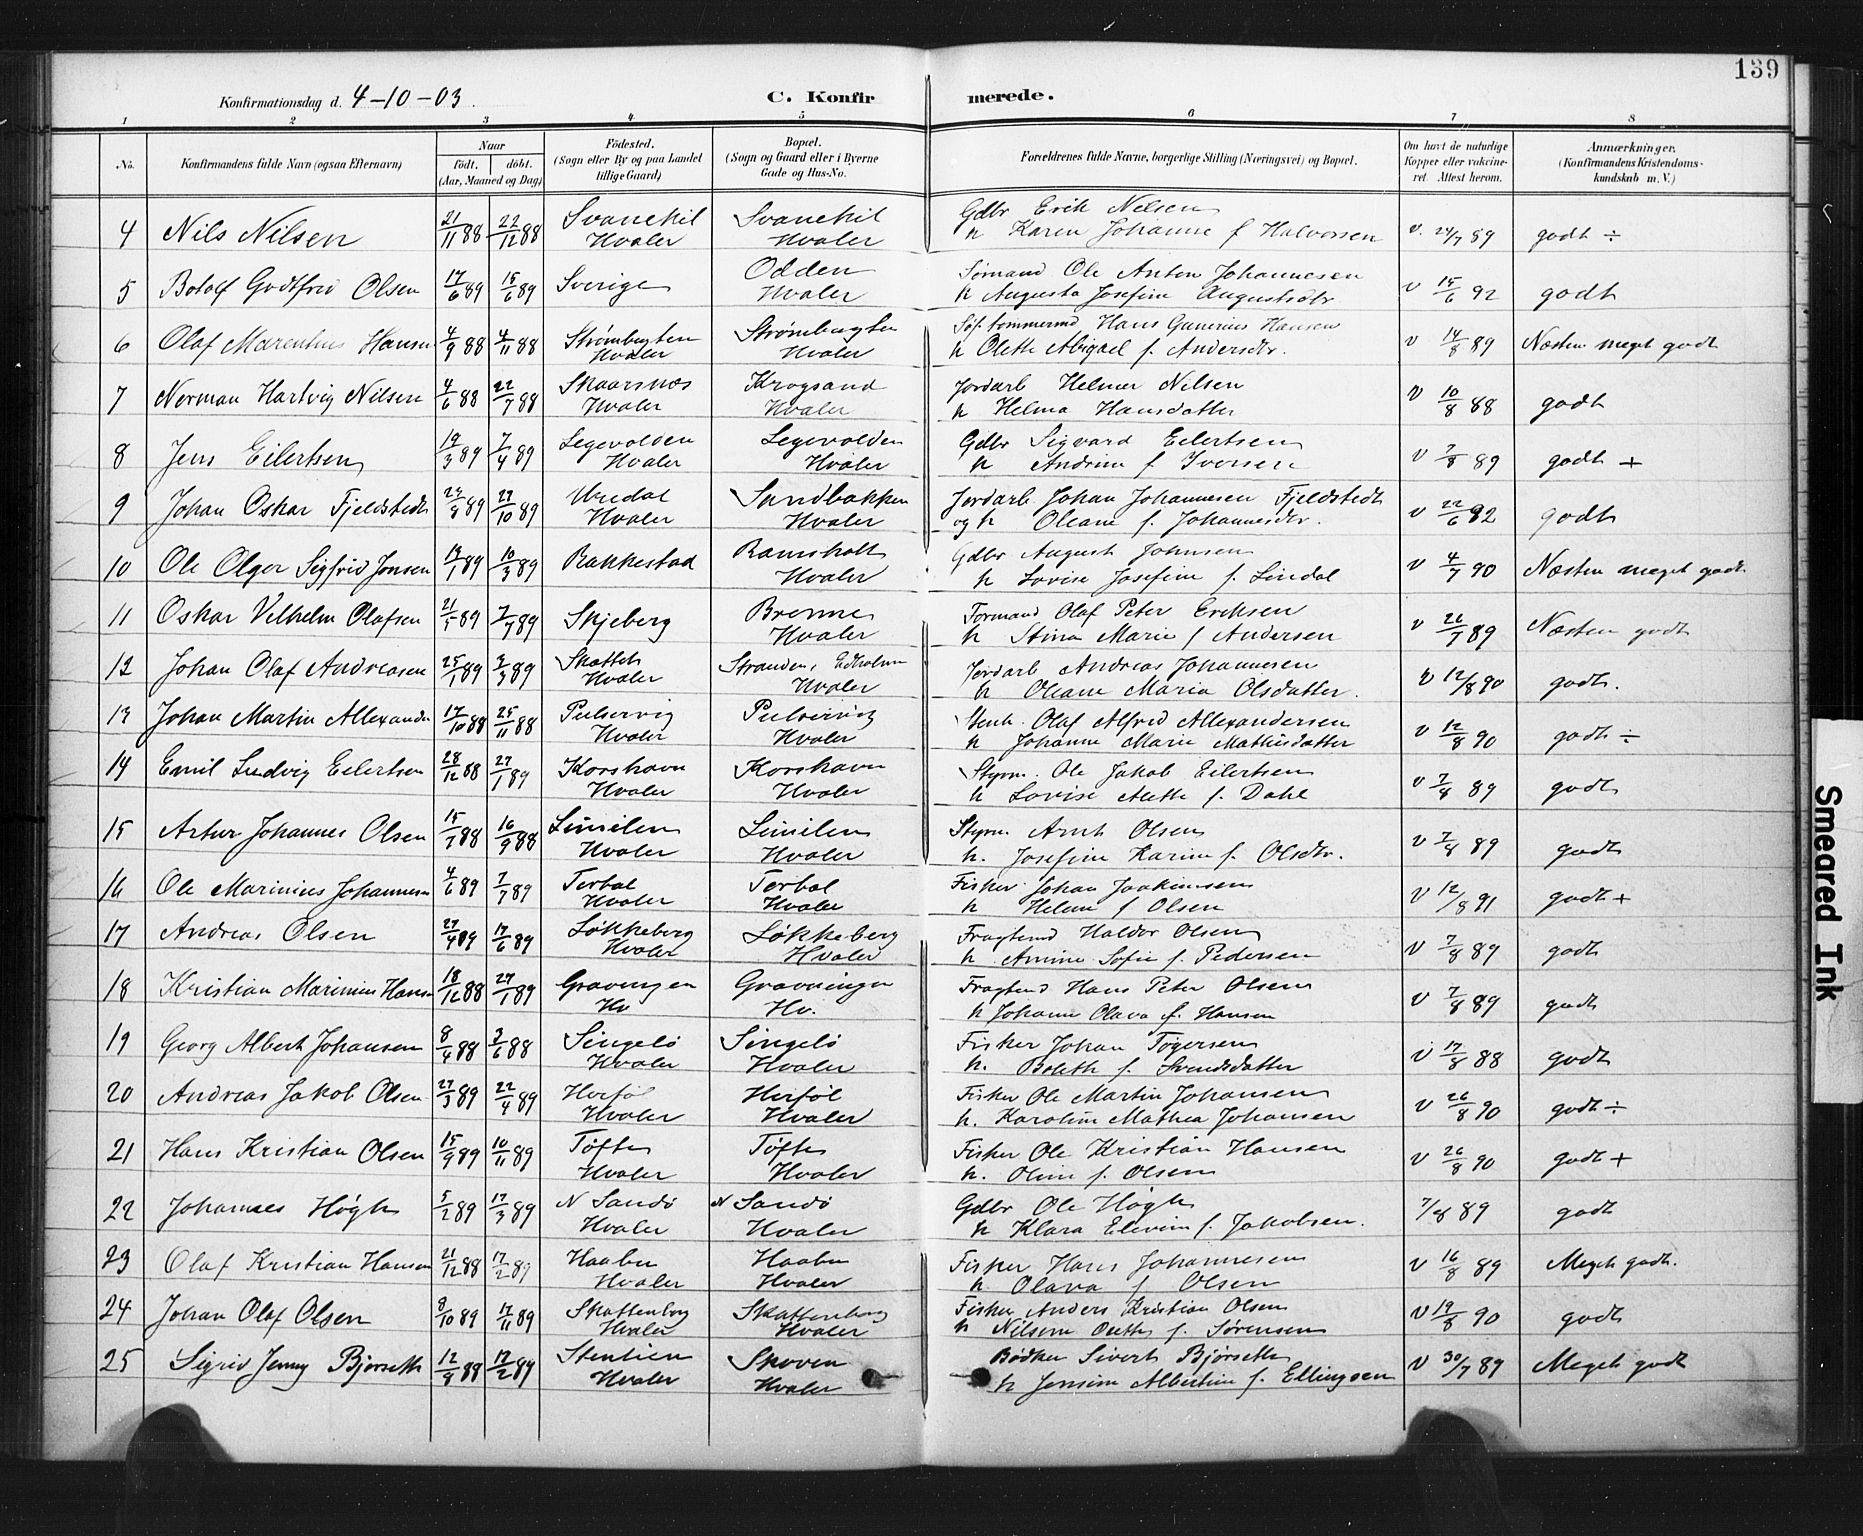 139
Konfirmationsdag d. 4-10-03.
C. Konfirmerede.
1 2 3 4 5 6 7 8
No. Konfirmandens fulde Navn (ogsaa Efternavn) Naar født, døbt. (Aar, Maaned og Dag) Fødested. (Sogn eller By og paa Landet tillige Gaard) Bopæl. (Sogn og Gaard eller i Byerne Gade og Hus-No. Forældrenes fulde Navne, borgerlige Stilling (Næringsvei) og Bopæl. Om havt de naturlige Kopper eller vakcineret. Attest herom. Anmærkninger. (Konfirmandens Kristendomskundskab m. V.)
4 Nils Nilsen 21/11 88 22/12 88 Svanekil Hvaler Svanekil Hvaler Gdbr Erik Nelsen h Karen Johanne f Halvorsen v. 24/7 89 godt ÷
5 Botolf Godtfred Olsen 17/6 89 15/6 89 Sverige Odden Hvaler Sømand Ole Anton Johannesen h Augusta Josefine Augustsdtr v 15/6 92 godt
6 Olaf Marentius Hansen 4/9 88 4/11 88 Strømbugten Hvaler Strømbugten Hvaler Søf. tømmermd Hans Gunerius Hansen h Olette Abigael f. Andersdtr. v 14/8 89 Næsten meget godt
7 Norman Hartvig Nilsen 4/6 88 22/7 88 Skaarsnæs Hvaler Krogsand Hvaler Jordarb Helmer Nilsen h Helma Hansdatter v 10/8 88 godt
8 Jens Eilertsen 19/3 89 7/4 89 Legevolden Hvaler Legevolden Hvaler Gdbr Sigvard Eilertsen h Andrine f Iversen v 7/8 89 godt +
9 Johan Oskar Fjeldstedt 89 27/10 89 Urdal Hvaler Sandbakken Hvaler Jordarb Johan Johannesen Fjeldstedt og h Oleane f. Johannesdtr. v 22/6 92 godt
10 Ole Olger Sigfrid Jonsen 19/1 89 10/3 89 Rakkestad Ramsholt Hvaler Gdbr August Johnsen h Lovise Josefine f. Lindal v 4/7 90 Næsten meget godt
11 Oskar Vilhelm Olafsen 21/5 89 7/7 89 Skjeberg Brenne Hvaler Formand Olaf Peter Eriksen h Stina Marie f Andersen v 26/7 89 Næsten godt
12 Johan Olaf Andreasen 25/1 89 3/3 89 Skattet Hvaler Stranden, Edholmen Hvaler Jordarb Andreas Johannesen h Oleane Maria Olsdatter. v 12/8 90 godt.
13 Johan Martin Allexander 17/10 88 25/11 88 Pulservig Hvaler Pulservig Hvaler Stenh. Olaf Alfred Allexandersen h Johanne Marie Mathisdatter v 12/8 90 godt ÷
14 Emil Ludvig Eilertsen 28/12 88 27/1 89 Korshavn Hvaler Korshavn Hvaler Styrm. Ole Jakob Eilertsen h Lovise Alette f. Dahl v 7/8 89 godt
15 Artur Johannes Olsen 15/7 88 16/9 88 Limilen Hvaler Limilen Hvaler Styrm. Arnt Olsen h. Josefine Karine f. Olsdtr. v 7/8 89 godt
16 Ole Marinius Johannesen 4/6 89 7/7 89 Terbal Hvaler Terbal Hvaler Fisker Johan Joakimsen h Helene f Olsen v 12/8 91 godt +
17 Andreas Olsen 27/4 89 17/6 89 Løkkeberg Hvaler Løkkeberg Hvaler Fragtemd Haldor Olsen h. Amine Sofie f. Pedersen v 7/8 89 godt
18 Kristian Marinius Hansen 18/12 88 27/1 89 Gravningen Hv Gravningen Hv. Fragtemd Hans Peter Olsen h Johanne Olava f. Hansen v 7/8 89 godt
19 Georg Albert Johansen 8/4 88 3/6 88 Singelø Hvaler Singelø Hvaler Fisker Johan Tøgersen h. Bolette f. Svendsdatter v 17/8 88 godt
20 Andreas Jakob Olsen 27/3 89 22/4 89 Herføl Hvaler Herføl Hvaler Fisker Ole Martin Johansen h. Karoline Mathea Johansen v 26/8 90 godt ÷
21 Hans Kristian Olsen 15/9 89 10/11 89 Tøfte Hvaler Tøfte Hvaler Fisker Ole Kristian Hansen h. Oline f. Olsen v 26/8 90 godt +
22 Johannes Høgh 5/2 89 17/3 89 N Sandø Hvaler N Sandø Hvaler Gdbr Ole Høgh h Klara Elevine f. Jakobsen. 7/8 89 godt
23 Olaf Kristian Hansen 21/12 88 17/2 89 Haaben Hvaler Haaben Hvaler Fisker Hans Johannesen h Olava f Olsen v 16/8 89 Meget godt.
24 Johan Olaf Olsen 8/10 89 17/11 89 Skattenborg Hvaler Skattenborg Hvaler Fisker Anders Kristian Olsen h Nilsine f. Sørensen v 19/8 90 godt
25 Sigrid Jenny Bjørseth 12/ 88 17/2 89 Stentien Hvaler Skoven Hvaler Bødker Sivert Bjørseth h Jensine Albertine f. Ellingsen v 30/7 89 Meget godt
Smeared Ink